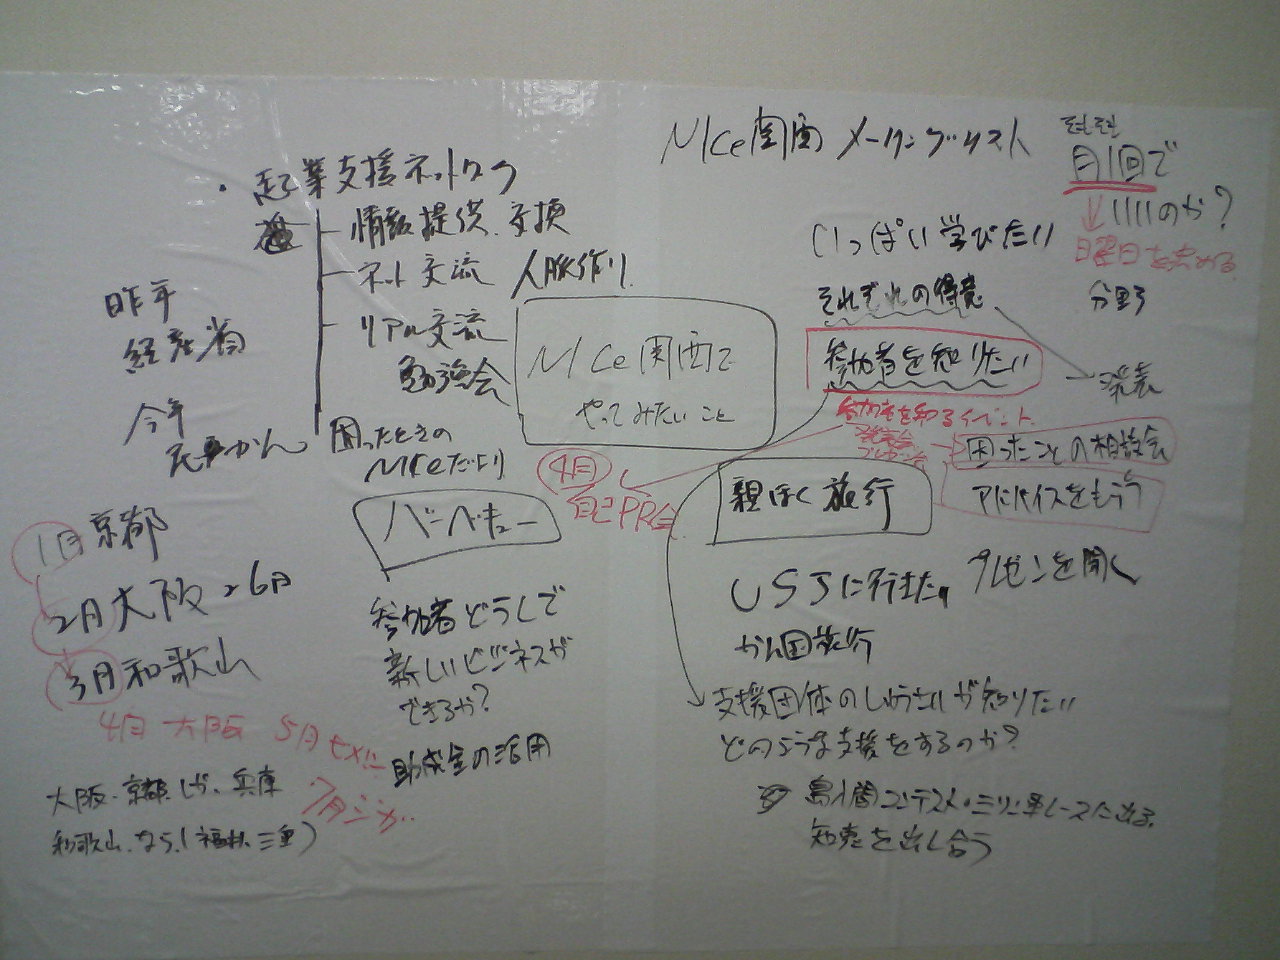 ・起業支援ネットワーク
情報提供、交換
ネット交流 人脈作り
リアル交流
勉強会
昨年
経産省
今年
困ったときの
NICeだより
バーベキュー
1月 京都
2月 大阪 26日
3月 和歌山
4月 大阪 5月
7月 シガ
大阪、京都、しが、兵庫
和歌山、なら、(福井、三重)
参加者どうしで
新しいビジネスが
できるか?
助成金の活用
NICe関西で
やってみたいこと
4月
自己PR会
NICe関西 メーリングリスト
月1回で
いいのか?
日曜日を決める
分野
いっぱい学びたい
それぞれの得意
発表
参加者を知りたい
参加者を知るイベント
困ったことの相談会
アドバイスをもらう
親ぼく旅行
USJに行きたい
プレゼンを聞く
かん国旅行
支援団体のしょうさいが知りたい
どのような支援をするのか?
鳥人間コンテスト
知恵を出し合う